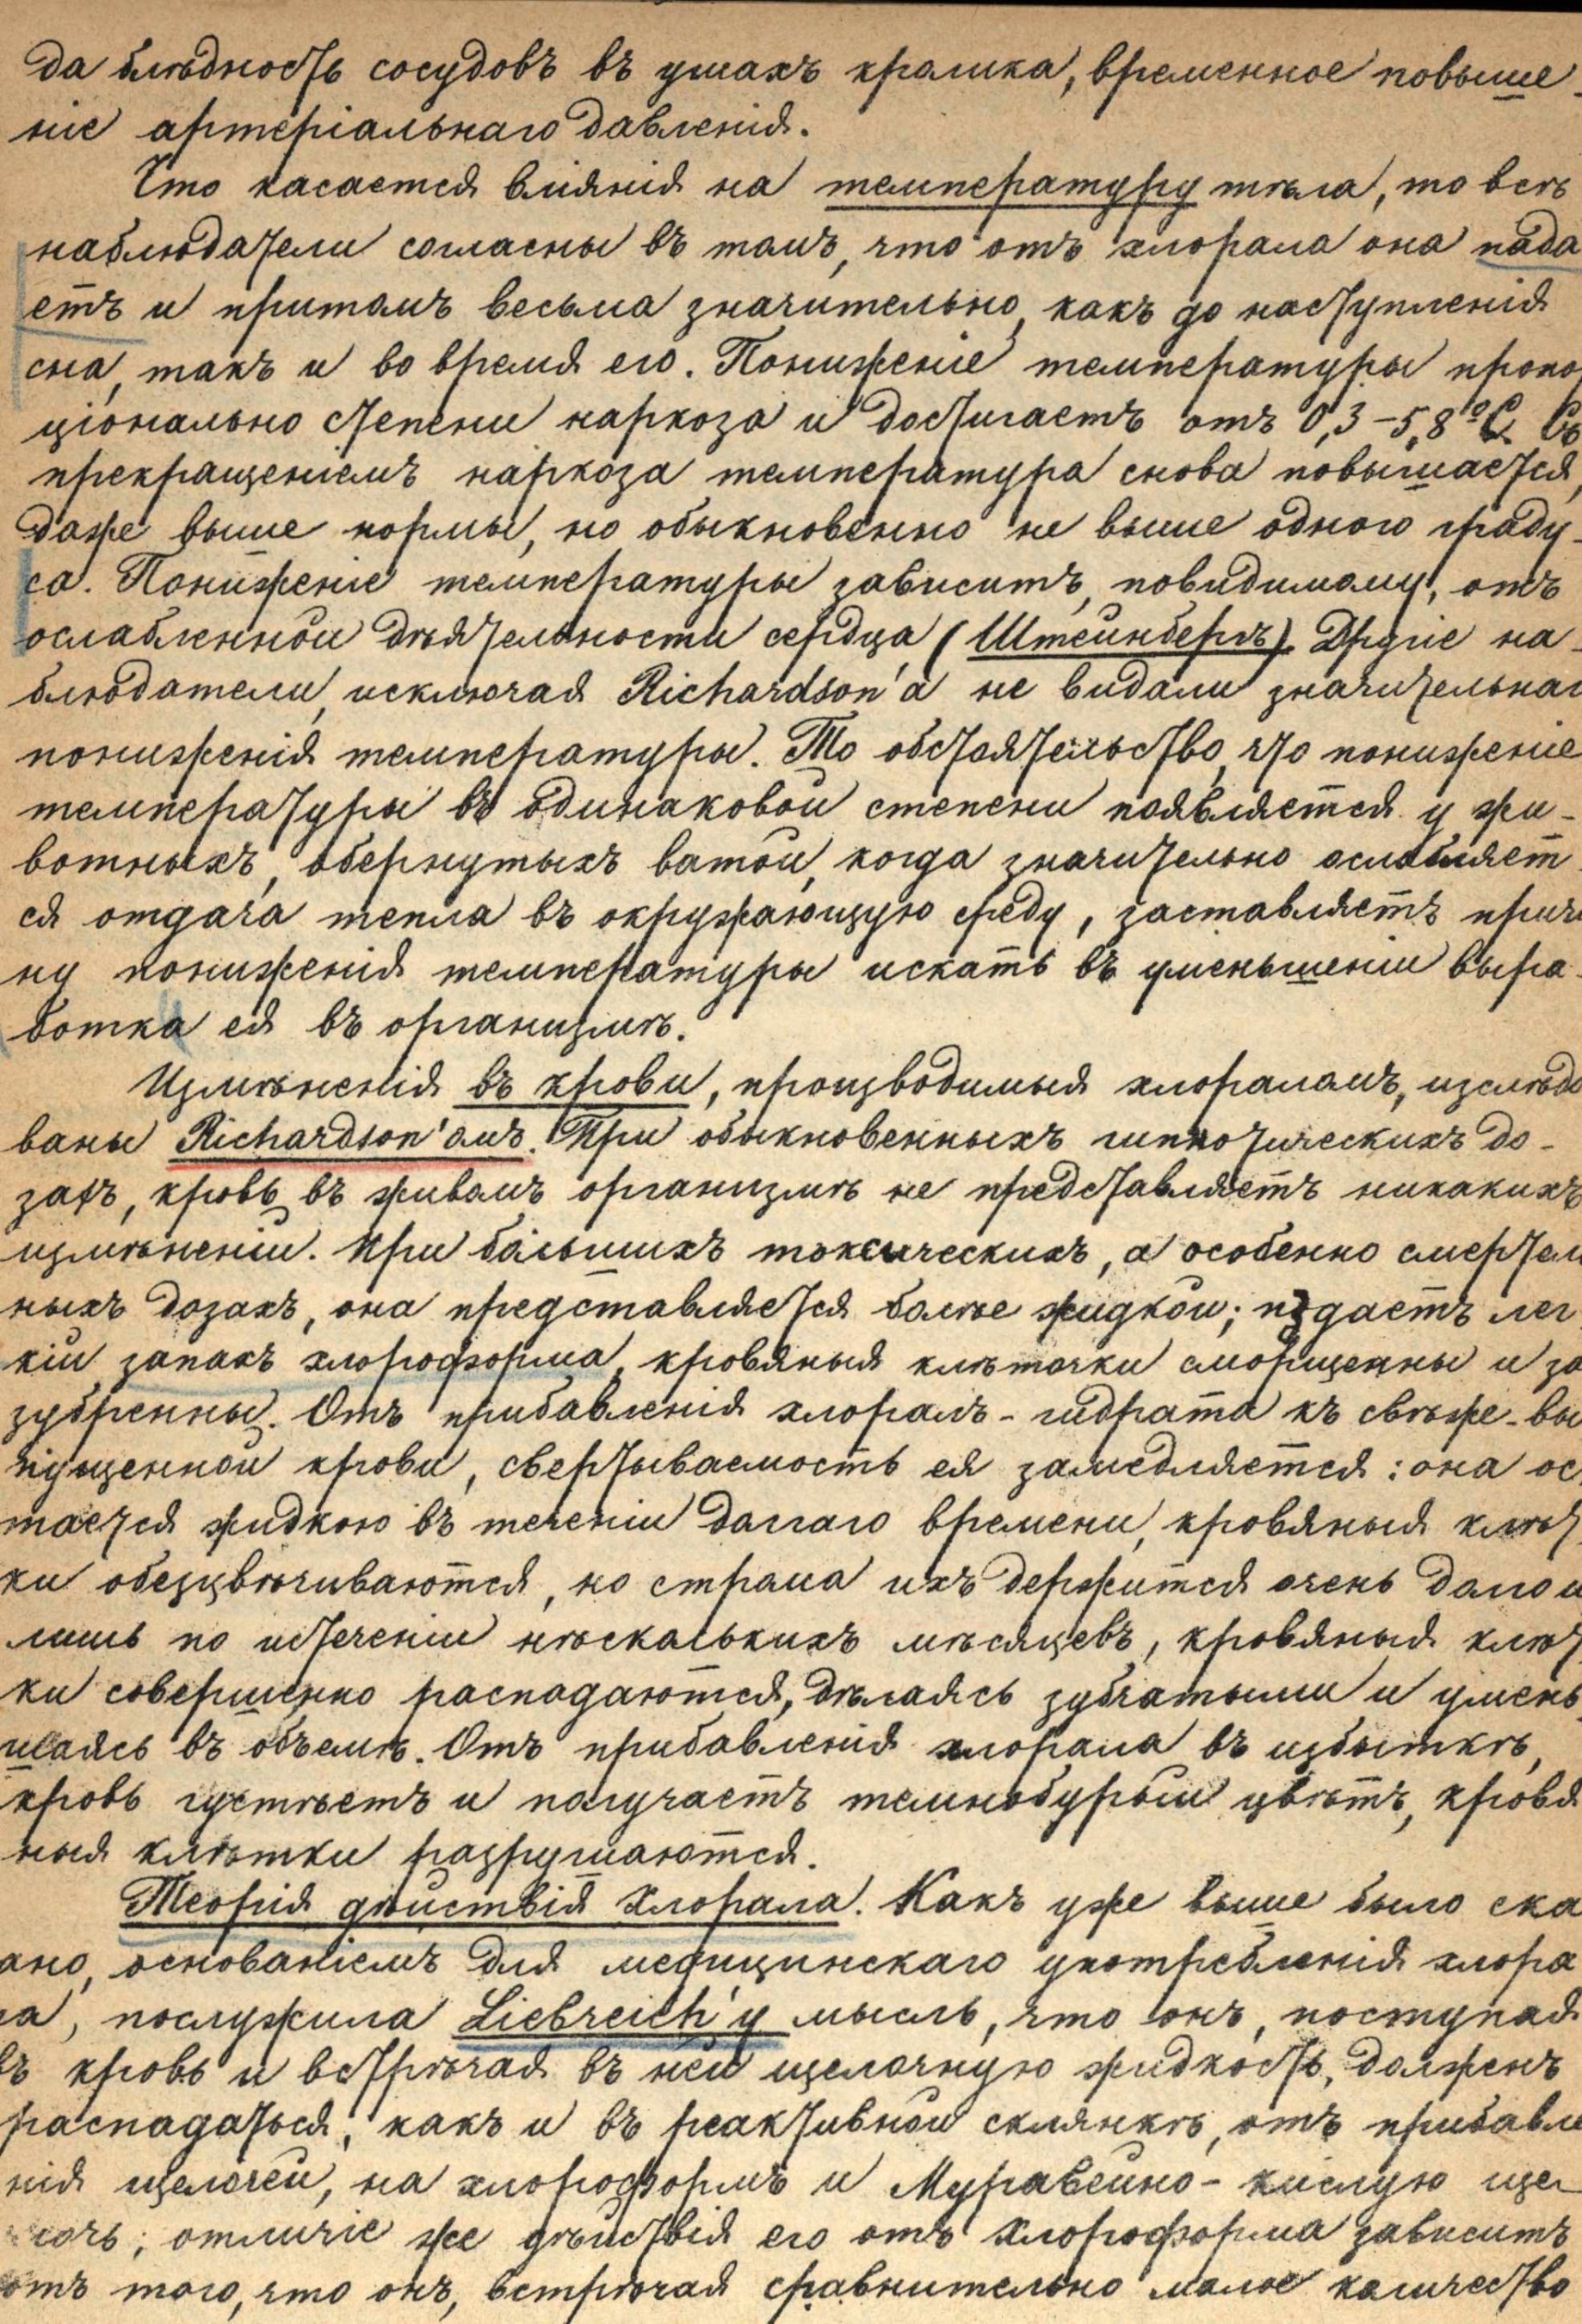 да блѣдность сосудовъ въ ушахъ кролика, временное повыше-
ніе артеріальнаго давленія.
Что касается вліянія на температуру тѣла, то всѣ
наблюдатели согласны въ томъ, что отъ хлорала она пада
етъ и притомъ весьма значительно, какъ до наступленія
сна, такъ и во время его. Пониженіе температуры пропор
ціонально степени наркоза и достигаетъ отъ 0,3-5,8°C. Съ
прекращеніемъ наркоза температура снова повышается,
даже выше нормы, но обыкновенно не выше одного граду-
са. Пониженіе температуры зависитъ, повидимому, отъ
ослабленной дѣятельности сердца (Штейнбергъ). Другіе на-
блюдатели, исключая Richardson'а не видали значительнаг
пониженія температуры. То обстоятельство, что пониженіе
температуры въ одинаковой степени появляется у жи-
вотныхъ, обернутыхъ ватой, когда значительно ослабляет-
ся отдача тепла въ окружающую среду, заставляетъ причи
ну пониженія температуры искать въ уменьшеніи выра-
ботка ея въ организмѣ.
Измѣненія въ крови, производимыя хлораломъ, изслѣдо
ваны Richardson'омъ. При обыкновенныхъ гипнотическихъ до-
захъ, кровь въ живомъ организмѣ не представляетъ никакихъ
измѣненій. При большихъ токсическихъ, а особенно смертел
ныхъ дозахъ, она представляется болѣе жидкой; издаетъ лег
кій запахъ хлороформа, кровяныя клѣточки сморщенны и за
зубренны. Отъ прибавленія хлоралъ-гидрата къ свѣже-вы
пущенной крови, свертываемость ея замедляется: она ос
тается жидкою въ теченіи долгаго времени, кровяныя клѣт
ки обезцвѣчиваются, но строма ихъ держится очень долго и
лишь по истеченіи нѣсколькихъ мѣсяцевъ, кровяныя клѣт
ки совершенно распадаются, дѣлаясь зубчатыми и умень
шаясь въ объемѣ. Отъ прибавленія хлорала въ избыткѣ,
кровь густѣетъ и получаетъ темнобурый цвѣтъ, кровя
ныя клѣтки разрушаются.
Теорія дѣйствія Хлорала. Какъ уже выше было ска
ано, основаніемъ для медицинскаго употребленія хлора
ла, послужила Liebreich'у мысль, что онъ, поступая
въ кровь и встрѣчая въ ней щелочную жидкость, долженъ
распадаться, какъ и въ реактивной склянкѣ, отъ прибавле
нія щелочей, на хлороформъ и Муравейно-кислую ще-
лочь; отличіе же дѣйствія его отъ Хлороформа зависитъ
отъ того, что онъ, встрѣчая сравнительно малое количество